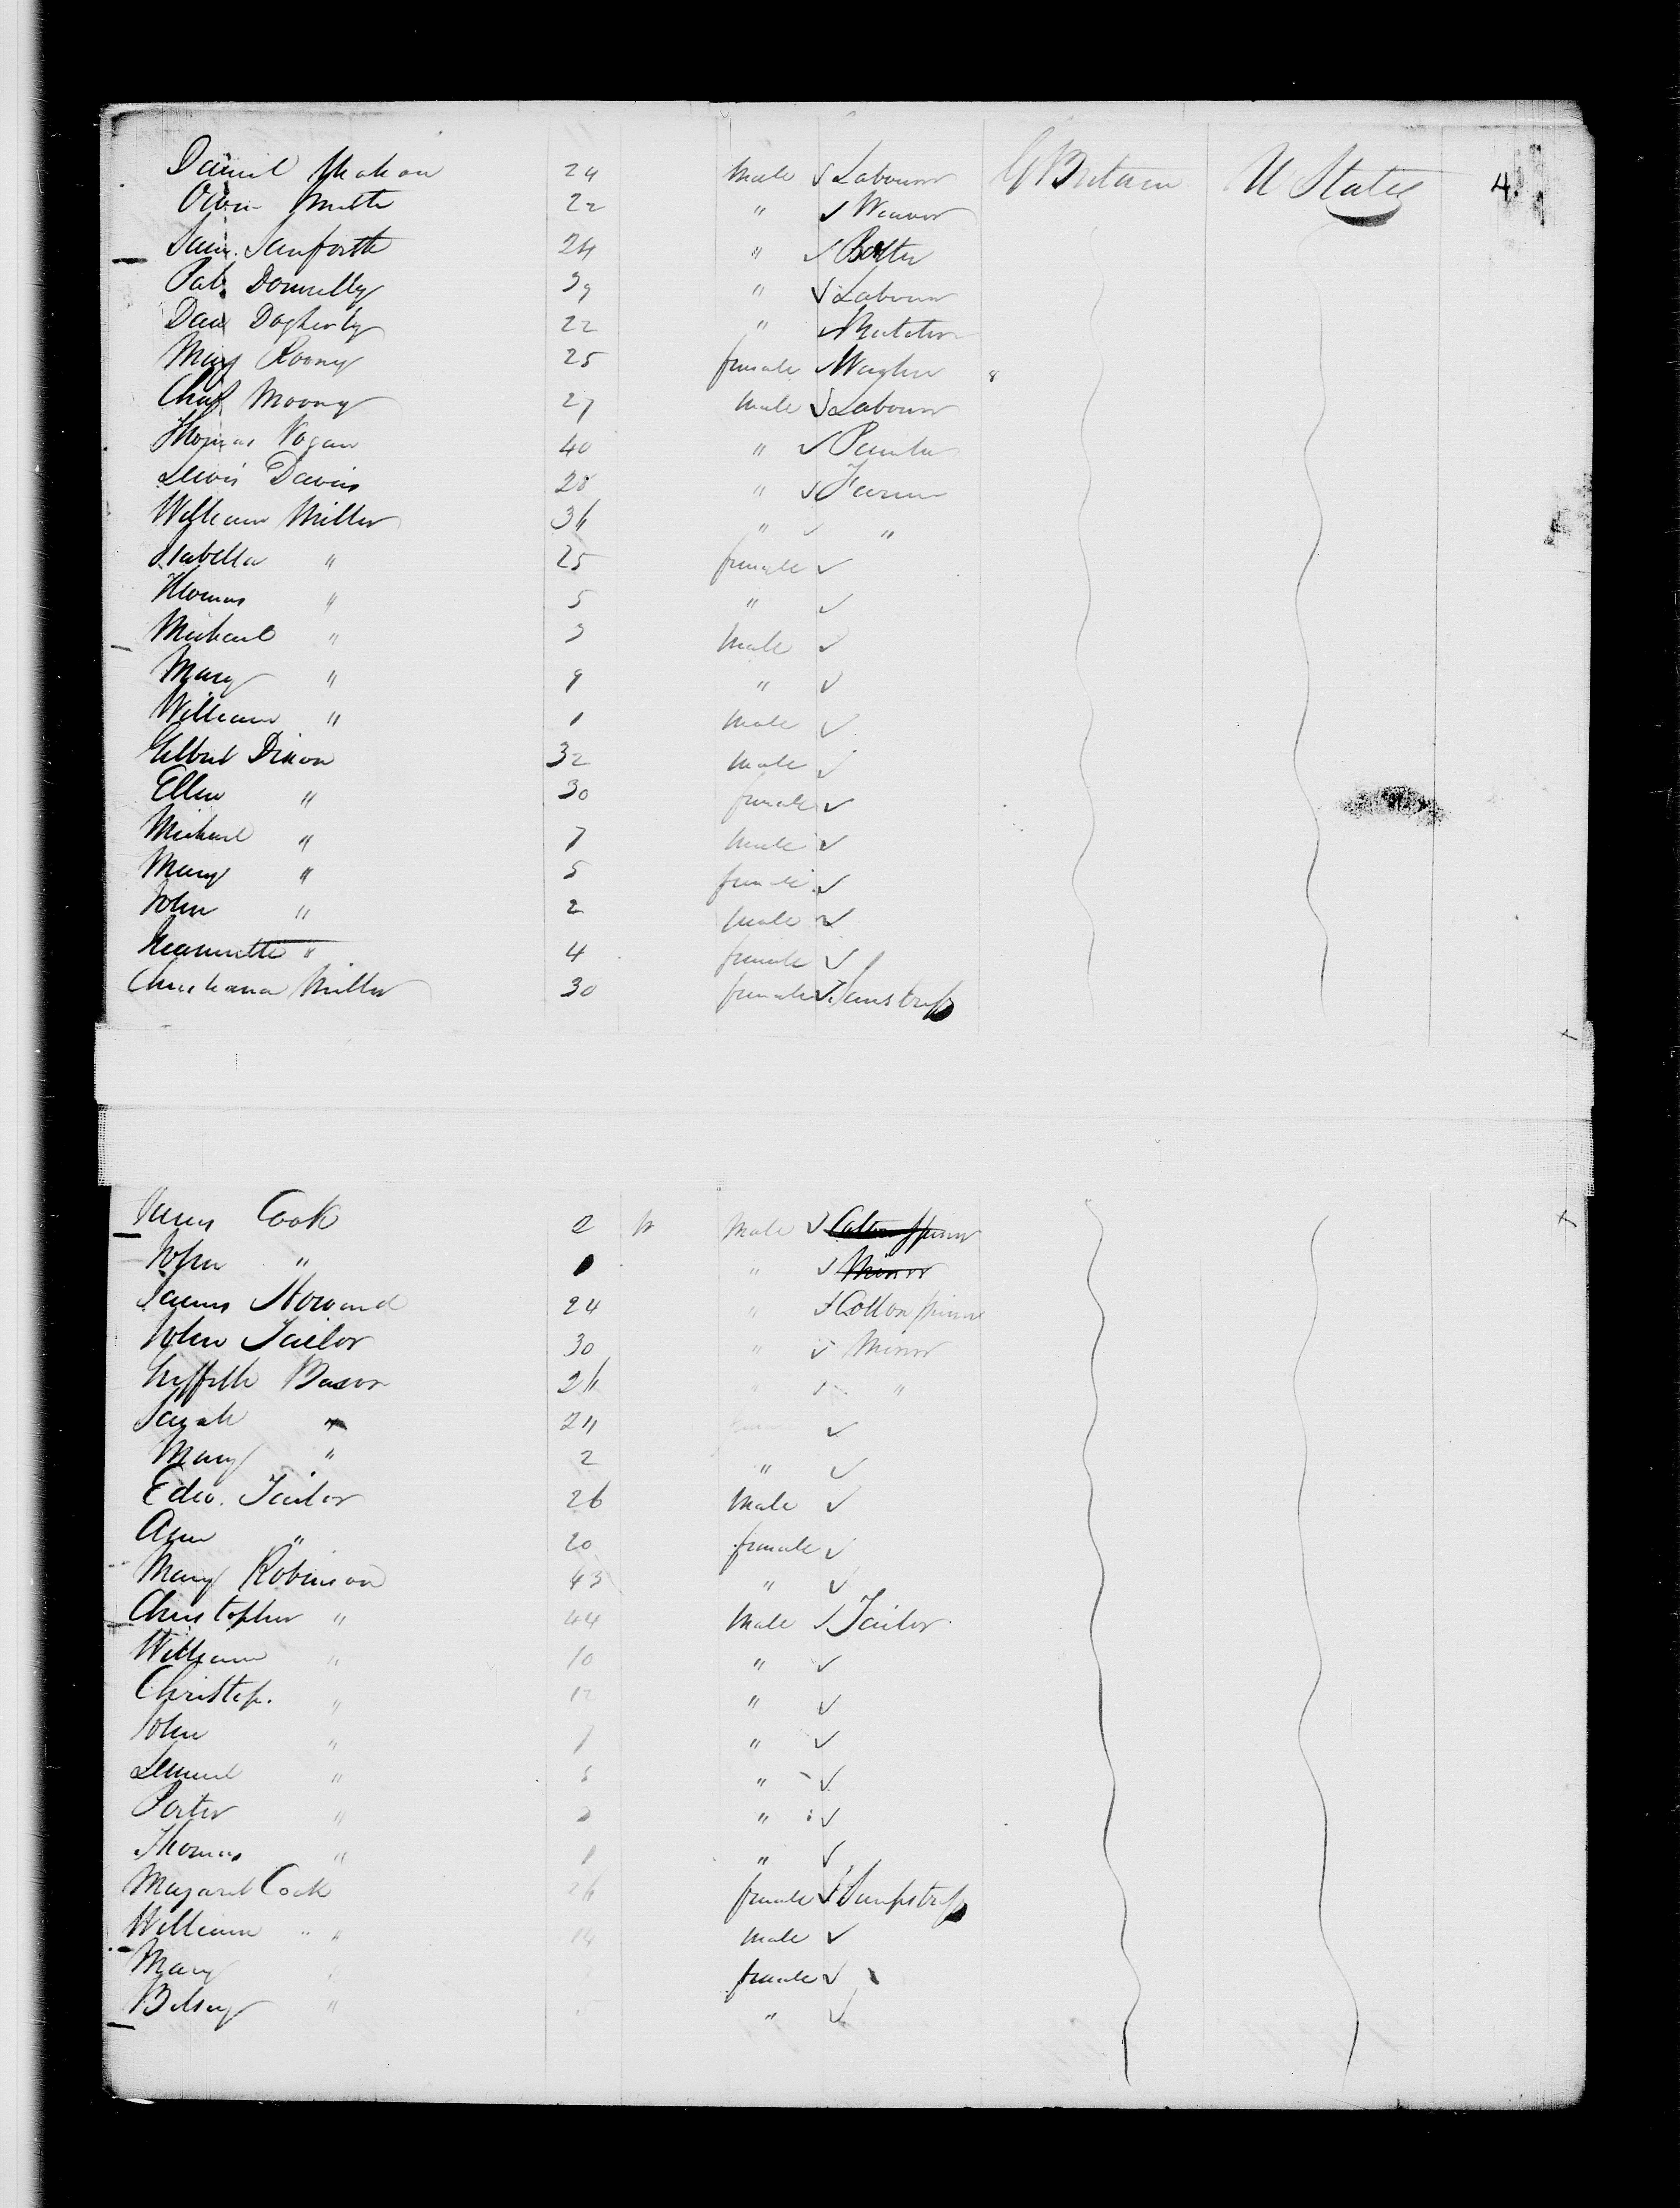 Daniel Mahon 24 Male Labourer G Britain U States 4.
Owen Smith 22 " Weaver
Sam. Sanforth 24 "
Pat. Donnelly 39 " Labourer
Dan Dogherty 22 "
Mary Roony 25 female
Chas Moony 27 Male Labourer
Thomas Hogan 40 " Painter
Lewis Davis 28 " Farmer
William Miller 36 " "
Isabella " 25 female
Thomas " 5 "
Michael " 3 Male
Mary " 9 "
William " 1 Male
Gilbert Dixon 32 Male
Ellen " 30 female
Michael " 7 Male
Mary " 5 female
John " 2 Male
Jeannette " 4 female
Christiana Miller 30 female Seamstress
James Cook 2 Male Cotton Spinner
John " " Minor
James Howard 24 " Cotton Spinner
John Tailor 30 " Minor
Griffith 26 " "
Sarah " 24
Mary " 2 "
Edw. Tailor 26 Male
Ann " 20 female
Mary Robinson 43 "
Christopher " 44 Male Tailor
William " 10 "
Christop. " 12 "
John " "
Lemuel " "
Porter " "
Thomas " 1 "
Margaret Cook 26 female Seampstress
William " 14 Male
Mary female
Betsey " "